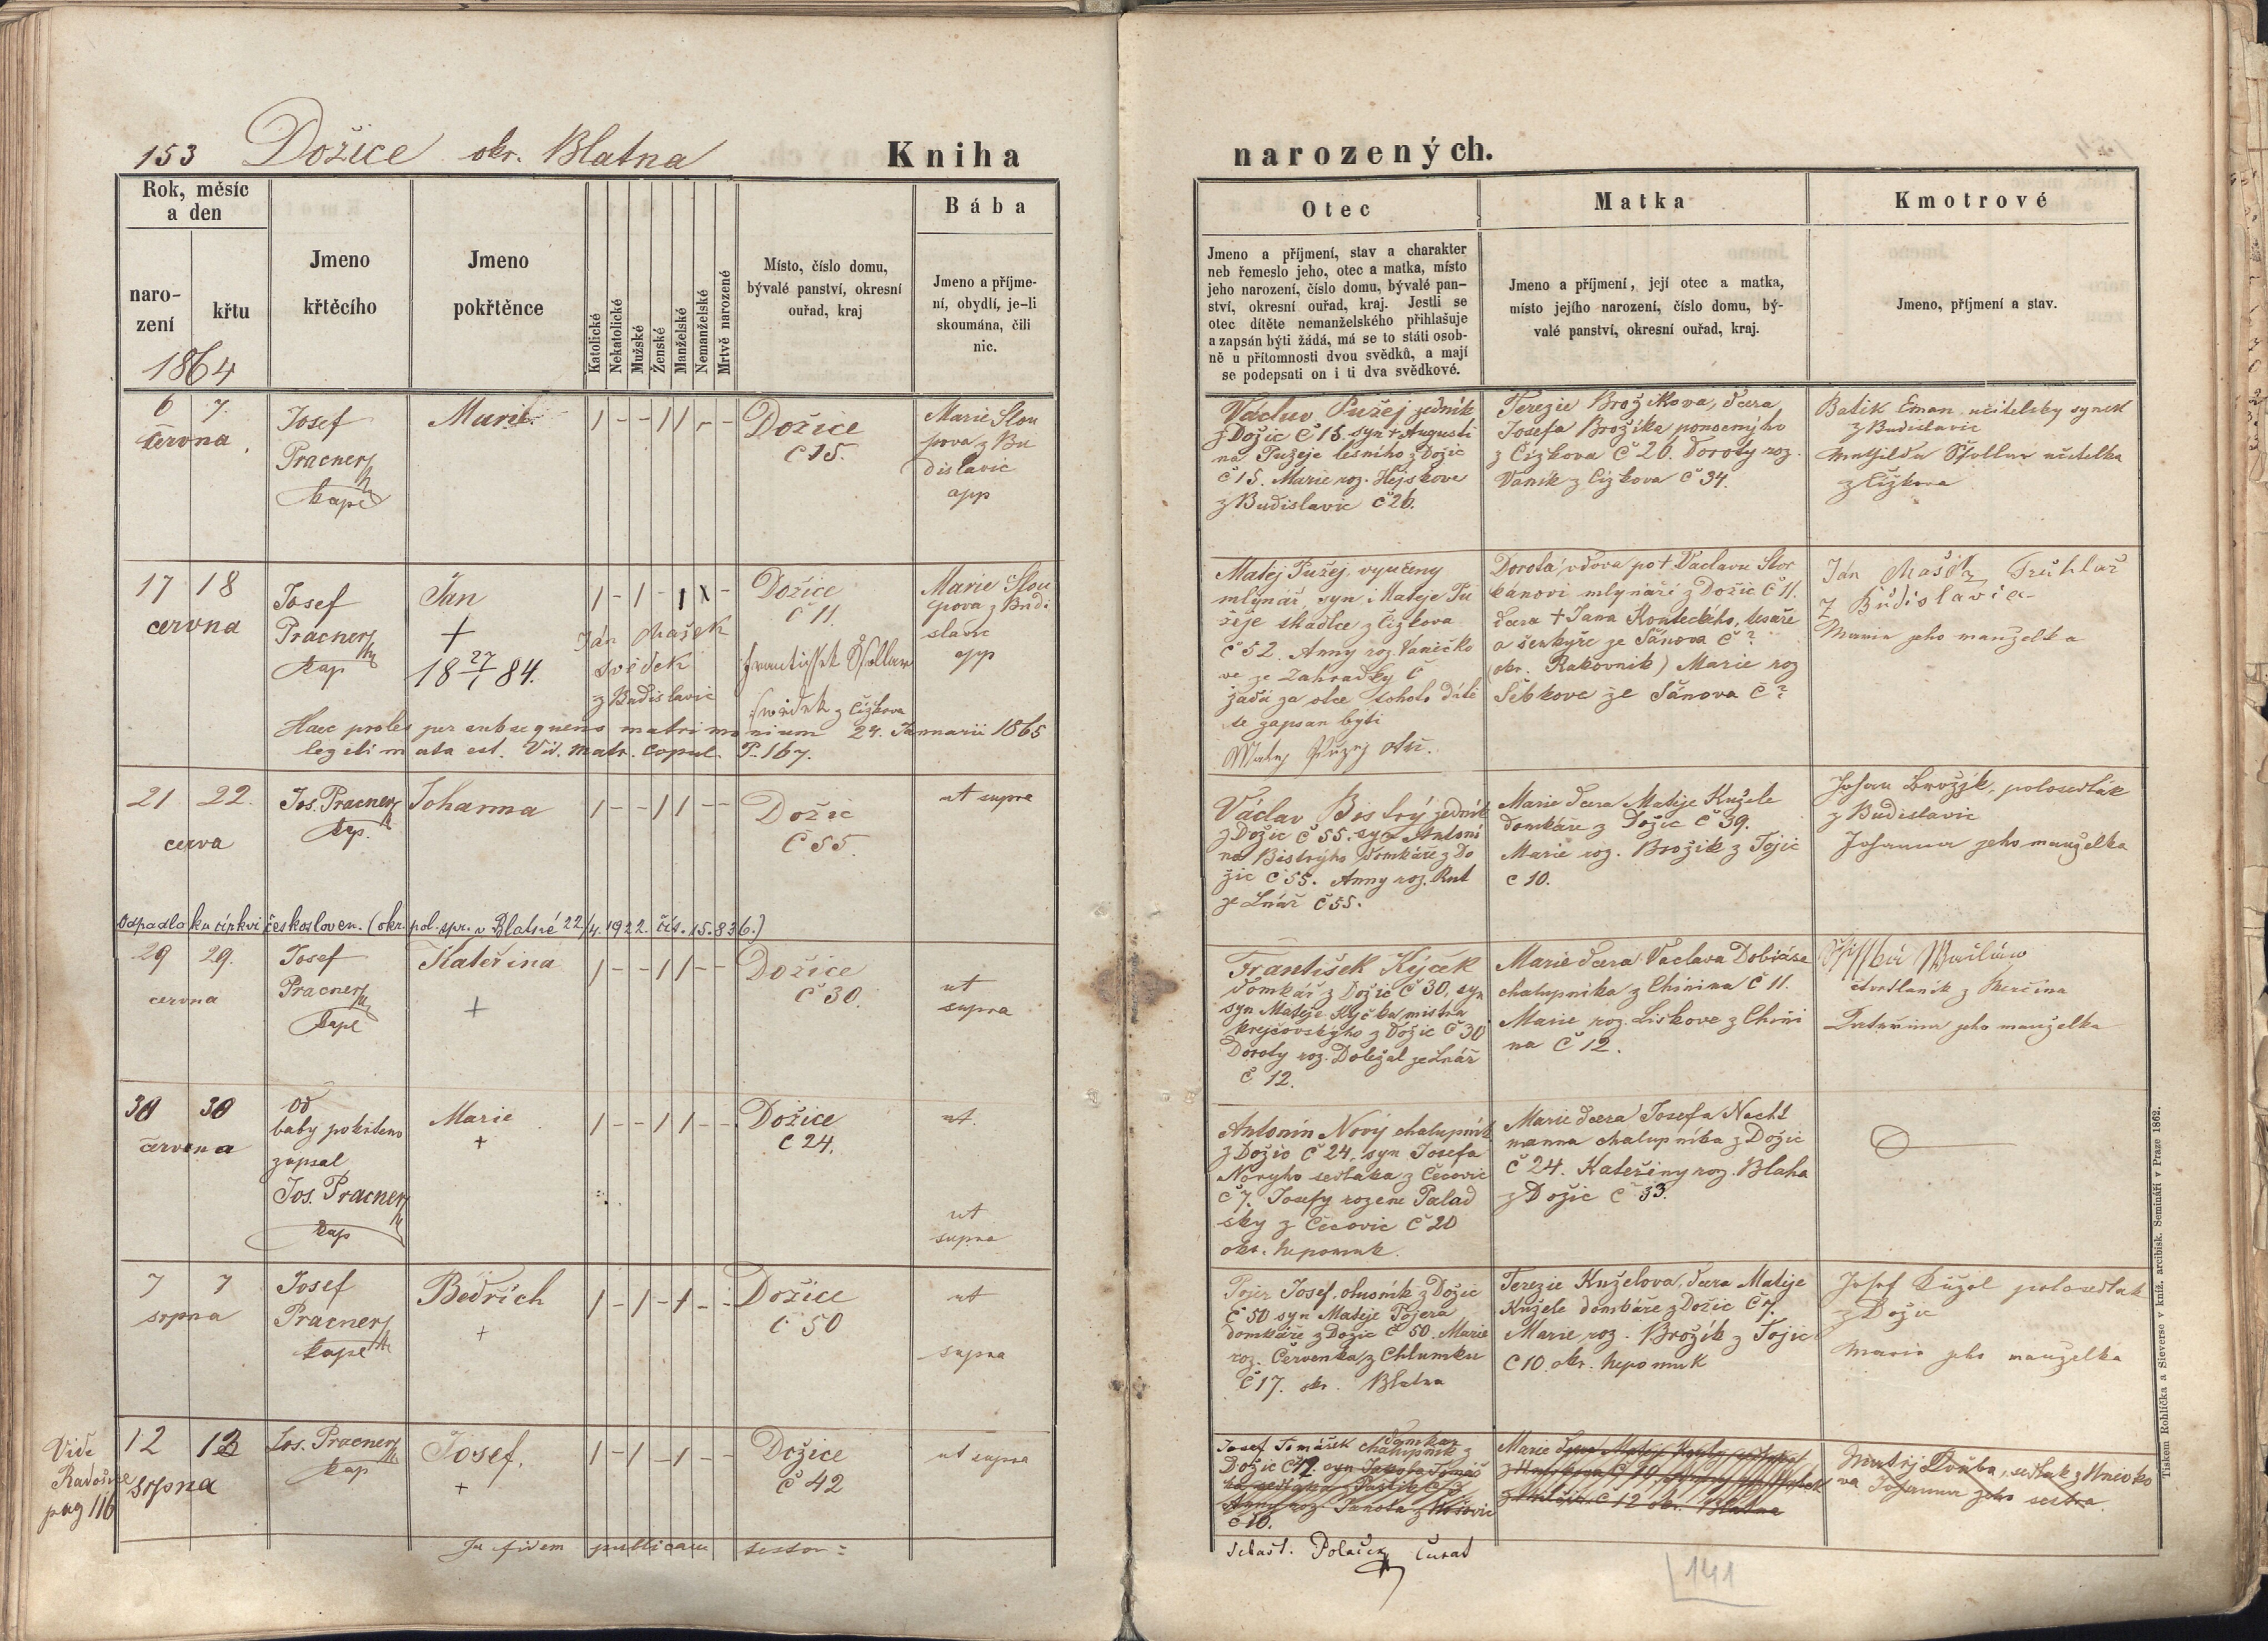 153 Dožice okr. Blatna Kniha narozených.
Rok, měsíc
a den
naro-
zení
křtu
1864
Jmeno
křtěcího
Jmeno
pokřtěnce
Katolické
Nekatolické
Mužské
Ženské
Manželské
Nemanželské
Mrtvě narozené
Místo, číslo domu,
bývalé panství, okresní
ouřad, kraj
Bába
Jmeno a příjme-
ní, obydlí, je-li
skoumána, čili
nic.
Otec
Jmeno a příjmení, stav a charakter
neb řemeslo jeho, otec a matka, místo
jeho narození, číslo domu, bývalé pan-
ství, okresní ouřad, kraj. Jestli se
otec dítěte nemanželského přihlašuje
a zapsán býti žádá, má se to státi osob-
ně u přítomnosti dvou svědků, a mají
se podepsati on i ti dva svědkové.
Matka
Jmeno a příjmení, její otec a matka,
místo jejího narození, číslo domu, bý-
valé panství, okresní ouřad, kraj.
Kmotrové
Jmeno, příjmení a stav.
6 7.
června
Josef
Pracner
kapl
Marie
1 - - 1 1 - -
Dožice
č 15.
Marie Slou
pova z Bu
dislavic
app
Vaclav Pužej
z Dožic č 15. syn + Augusti
na Pužeje lesního z Dožic
č 15. Marie roz. Hejskove
z Budislavic č 26.
Terezie Brožikova, dcera
Josefa Brožíka
z Čížkova č 26. Doroty roz.
Vaník z Cížkova č 34.
Batik Eman. učitelsky synek
z Budislavic
Mathilda Stollar učitelka
z Čížkova
17 18
cervna
Josef
Pracner
kap
Jan
+
18 27/1 84.
1 - 1 - 1 X -
Dožice
č 11.
Marie Slou
pova z Budi
slavic
app
Ján Mašek
svědek
z Budislavic
František Stollar
svědek z Čížkova
Haec proles per subsequens matrimonium 24. Januarii 1865
legitimata est. Vid. Matr. Copul. P. 167.
Matej Pužej, vyučeny
mlynář, syn Mateje Pu
žeje z Čížkova
č 52. Anny roz. Vaničko
ve ze Zahradky č
žada za otce tohoto dítě
te zapsan býti
Matej Pužej otec.
Dorota, vdova po + Vaclavu
kánovi mlynáři z Dožic č 11.
dcera + Jana
a ze Šánova č ?
(okr. Rakovnik) Marie roz
Šebkove ze Šánova č ?
Ján Mašek Truhlař
z Budislavic
Maria jeho manželka
21 22.
cerva
Jos. Pracner
kap.
Johanna
1 - - 1 1 - -
Dožic
č 55.
ut supra
Václav Bistrý
z Dožic č 55. syn Antoní
na Bistrýho domkáře z Do
žic č 55. Anny roz.
ze Lnář č 55.
Marie dcera Matěje Kužele
domkáře z Dožic č 39.
Marie roz. Brožik z Tojic
c 10.
Johan Brožjk, polosedlák
z Budislavic
Johanna jeho manželka
Odpadla ku církvi českosloven. (okr. pol. spr. v Blatné 22/4. 1922. čís. 15.836.)
29 29.
cervna
Josef
Pracner
kapl
Kateřina
+
1 - - 1 1 - -
Dožice
č 30.
ut
supra
František Kýček
domkář z Dožic č 30, syn
syn Mateje Kýčka mistra
krejčovskýho z Dožic č 30
Doroty roz. Doležal ze Lnář
č 12.
Marie dcera Vaclava
chalupnika z Chinina č 11.
Marie roz. Liškove z Chini
na č 12.
jeho manželka
30 30
července
Od
baby pokřteno
zapsal
Jos. Pracner
kap
Marie
+
1 - - 1 1 - -
Dožice
č 24.
ut.
ut
supra
Antonín Nový chalupník
z Dožic č 24, syn Josefa
Novyho sedlaka z Čečovic
č 7. Josefy rozene Palad
sky z Čečovic č 20
okr. Nepomuk.
Marie dcera Josefa Nacht
manna chalupníka z Dožic
č 24. Kateřiny roz. Blaha
z Dožic č 33.
7 7
srpna
Josef
Pracner
kapl
Bedřich
+
1 - 1 - 1 - -
Dožice
č 50
ut
supra
Tojer Josef, z Dožic
č 50 syn Matěje Tojera
domkáře z Dožic č 50. Marie
roz. Červenka z Chlumku
č 17. okr. Blatna
Terezie Kuželova, dcera Matěje
Kužele domkáře z Dožic č
Marie roz. Brožík z Tojic
č 10 okr. Nepomuk
Josef polosedlak
z Dožic
Maria jeho manželka
Vide
Radošice
pag 116
12 13
srpna
Jos. Pracner
kap
Josef.
+
1 - 1 - 1 - -
Dožice
č 42
ut supra
domkar
Josef Tomášek chalupník z
Dožic č 42. syn Jakoba Tomáš
č 10.
Marie
č 12 okr. Blatna
Matěj Douba, sedlak z
va Johanna jeho sestra
In fidem publicam testor:
Sebast. Polaček Curat
141
Tiskem Rohlíčka a Sieverse v kníž. arcibisk. Semináři v Praze 1862.